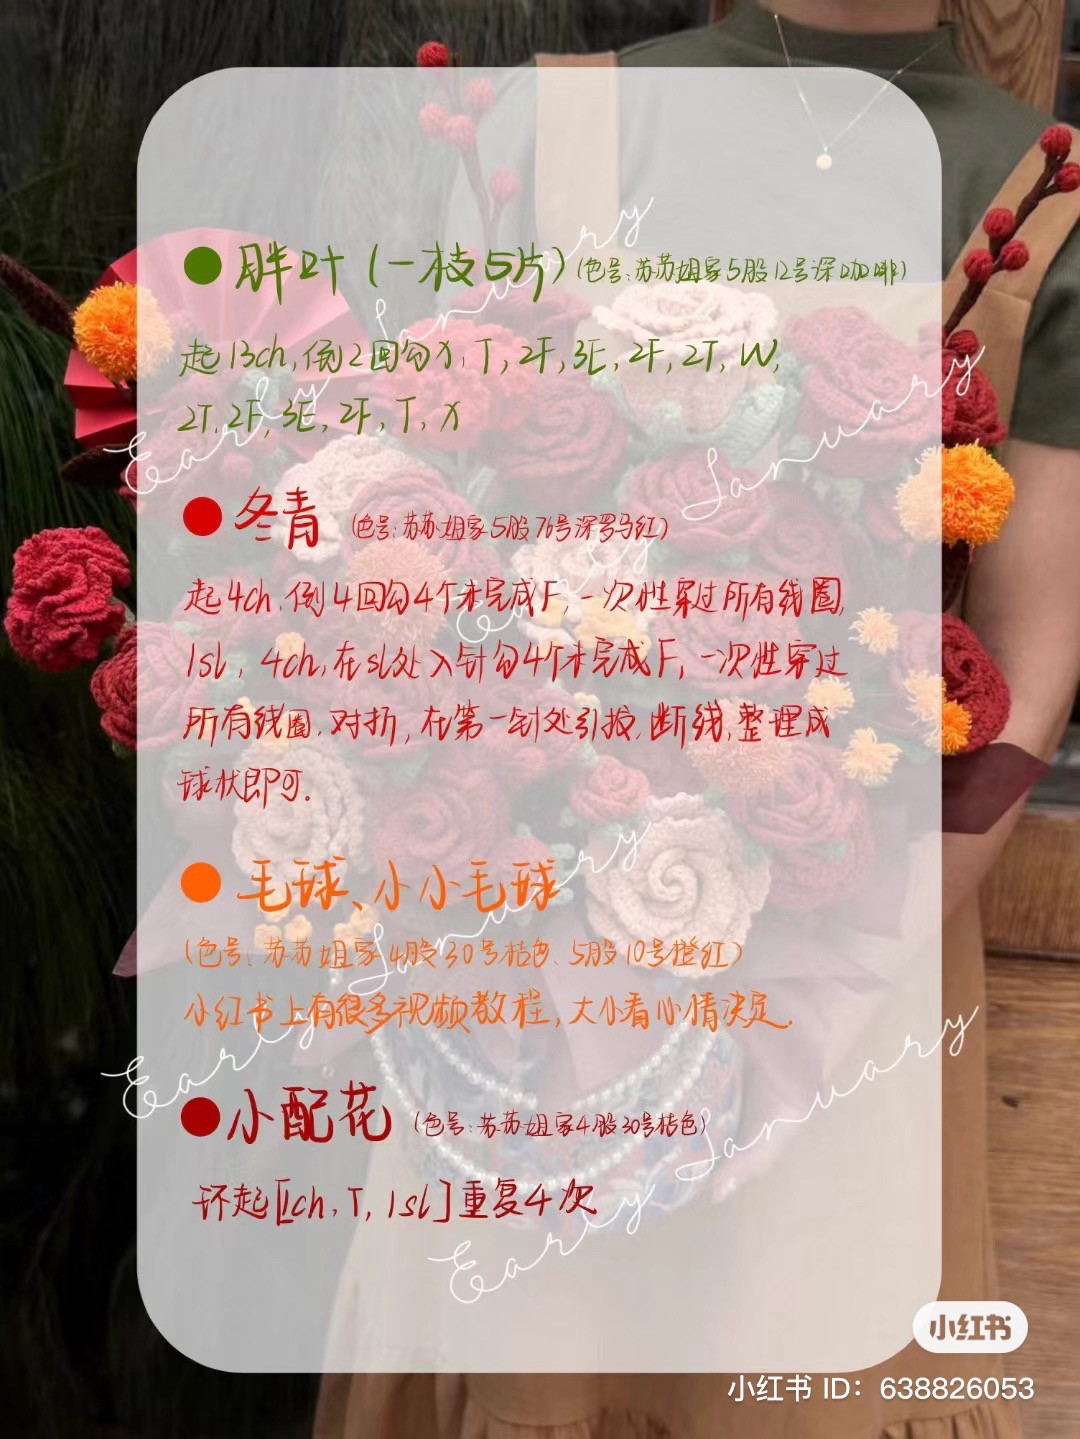 胖叶（一枝5片）（色号：苏苏姐家5股12号深咖啡）
起13ch，倒2回勾X，T，2F，3E，2F，2T，W，
2T，2F，3E，2F，T，X
冬青（色号：苏苏姐家5股76号深罗马红）
起4ch，倒4回勾4个未完成F，一次性穿过所有线圈，
1sl，4ch，在sl处入针勾4个未完成F，一次性穿过
所有线圈，对折，在第一针处引拔，断线，整理成
球状即可．
毛球、小小毛球
（色号：苏苏姐家4股30号桔色、5股10号橙红）
小红书上有很多视频教程，大小看心情决定．
小配花（色号：苏苏姐家4股30号桔色）
环起[1ch，T，1sl]重复4次
Early January
Early January
Early January
Early January
小红书
小红书 ID：638826053